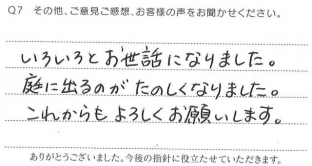 Q7 その他、ご意見ご感想、お客様の声をお聞かせください。
いろいろとお世話になりました。
庭に出るのがたのしくなりました。
これからもよろしくお願いします。
ありがとうございました。今後の指針に役立たせていただきます。